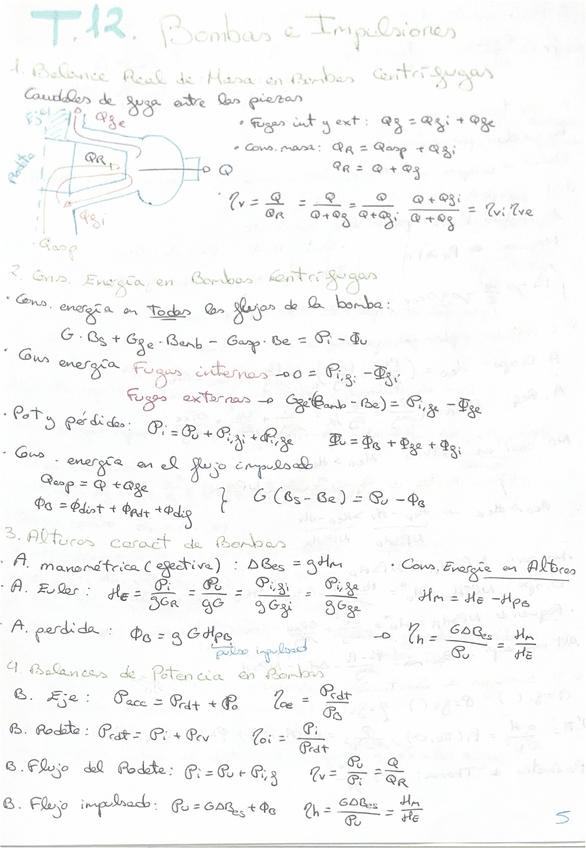 T.12. Bombas e Impulsiones
1. Balance Real de Masa en Bombas Centrífugas
Caudales de fuga entre las piezas
Eje
Qge
Rodete
QR
Q
Qgi
Qasp
• Fugas int y ext: Qg = Qgi + Qge
• Cons. masa: QR = Qasp + Qgi
QR = Q + Qg
ηv = Q/QR = Q/(Q+Qg) = Q/(Q+Qgi) (Q+Qgi)/(Q+Qg) = ηvi·ηve
2. Cons. Energía en Bombas Centrífugas
• Cons. energía en todos los flujos de la bomba:
G·Bs + Gge·Bamb - Gasp·Be = Pi - Φu
• Cons energía Fugas internas → 0 = Pi,gi - Φgi
Fugas externas → Gge(Bamb - Be) = Pi,ge - Φge
• Pot y pérdidas: Pi = Pu + Pi,gi + Pi,ge Φu = ΦB + Φge + Φgi
• Cons. energía en el flujo impulsado
Qasp = Q + Qge
ΦB = Φdist + Φrdt + Φdig
G (Bs - Be) = Pu - ΦB
3. Alturas caract de Bombas
• A. manométrica (efectiva): ΔBes = gHm
• A. Euler: HE = Pi/gGR = Pu/gG = Pi,gi/gGgi = Pi,ge/gGge
• A. perdida: ΦB = g G HpB
pulso impulsado
• Cons. Energía en Alturas
Hm = HE - HpB
→ ηh = GΔBes/Pu = Hm/HE
4. Balances de Potencia en Bombas
B. Eje: Pacc = Prdt + Po ηoe = Prdt/PB
B. Rodete: Prdt = Pi + Prv ηoi = Pi/Prdt
B. Flujo del Rodete: Pi = Pu + Pi,g ηv = Pu/Pi = Q/QR
B. Flujo impulsado: Pu = GΔBes + ΦB ηh = GΔBes/Pu = Hm/HE
5